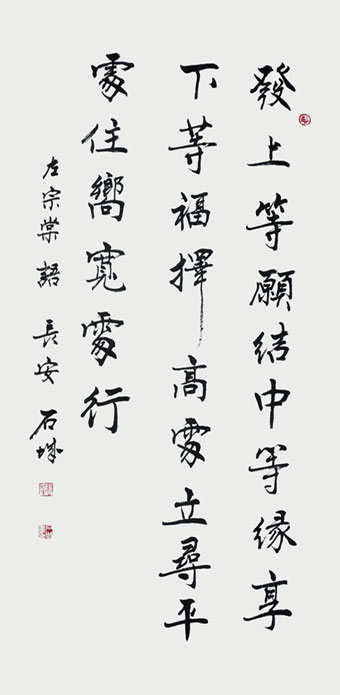 發上等願結中等緣享
下等福擇高處立尋平
處住嚮寬處行
左宗棠語 長安 石城